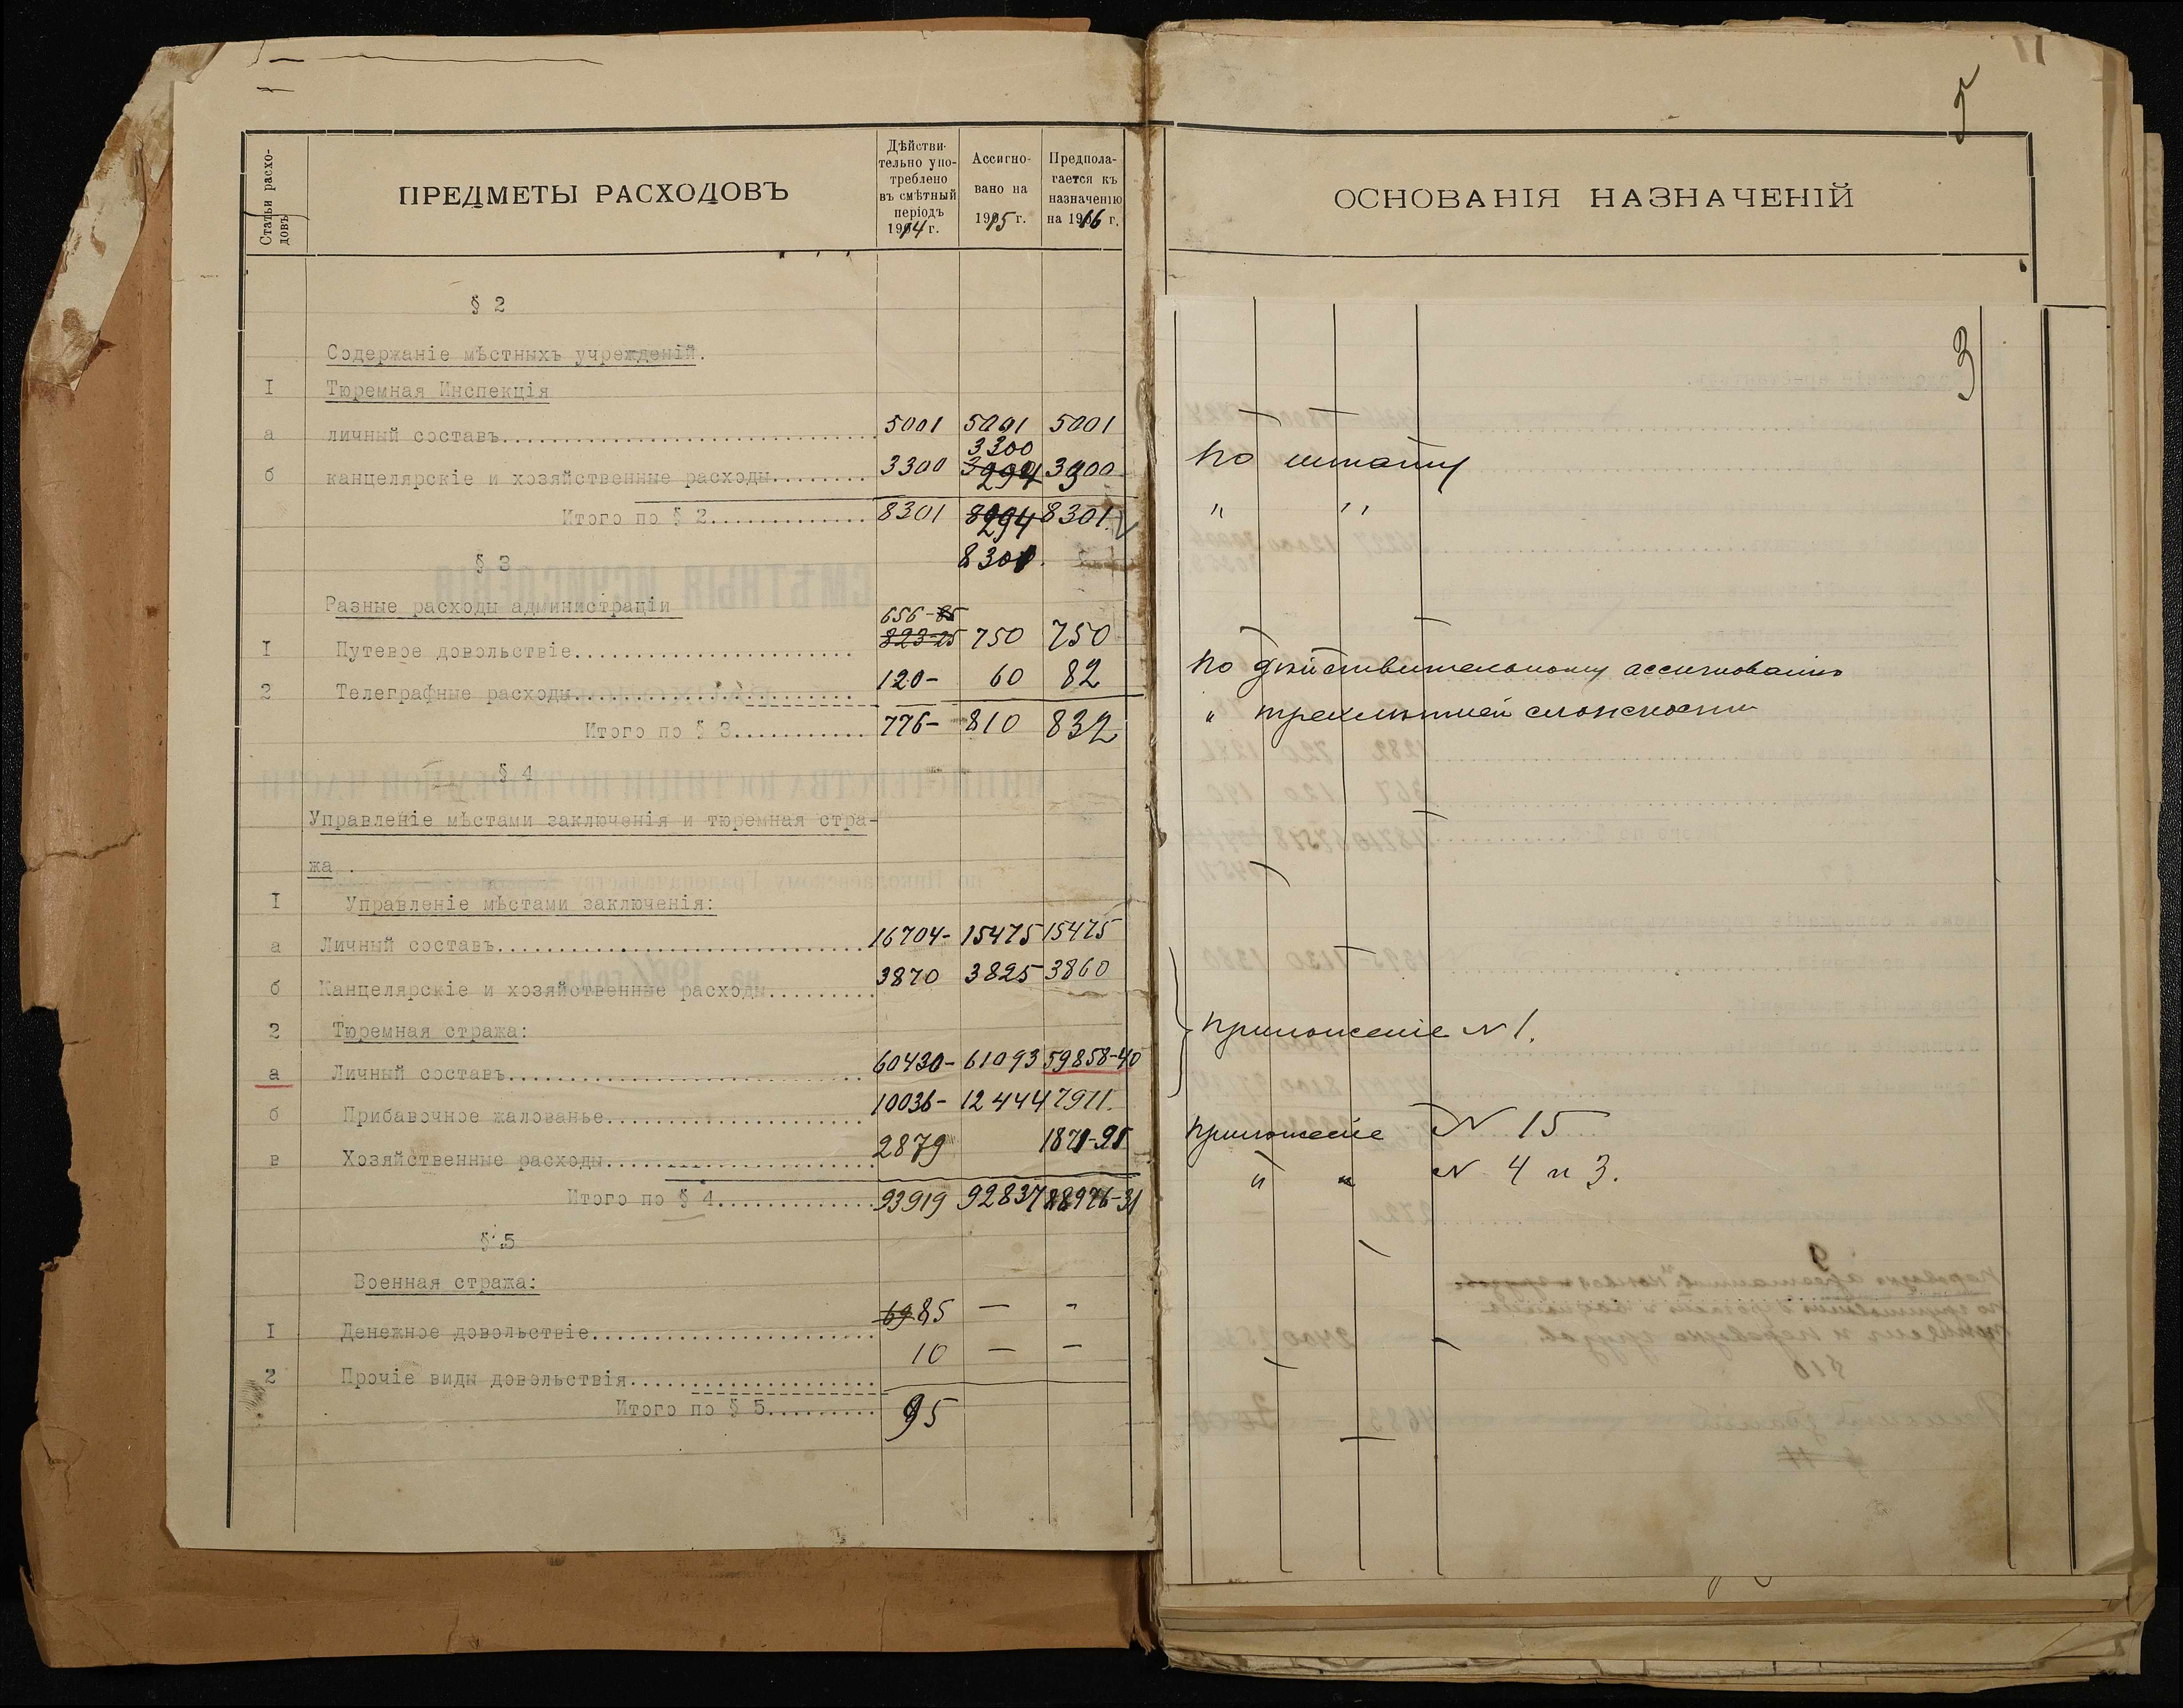 5
Статьи расхо-
довъ
ПРЕДМЕТЫ РАСХОДОВЪ
Дѣйстви-
тельно упо-
треблено
въ смѣтный
періодъ
1914 г.
Ассигно-
вано на
1915 г.
Предпола-
гается къ
назначенію
на 1916 г.
ОСНОВАНІЯ НАЗНАЧЕНІЙ
3
§ 2
Содержаніе мѣстныхъ учрежденій.
I Тюремная Инспекція
а личный составъ 5001 5001 5001 по штату
3300
б канцелярскіе и хозяйственные расходы 3300 3294 3300 " "
Итого по § 2 8301 8294 8301
8301.
§ 3
Разные расходы администраціи
656-85
I Путевое довольствіе 823-25 750 750 по дѣйствительному ассигнованію
2 Телеграфные расходы 120- 60 82 " трехлѣтней сложности
Итого по § 3 776- 810 832
§ 4
Управленіе мѣстами заключенія и тюремная стра-
жа.
I Управленіе мѣстами заключенія:
а Личный составъ 16704- 15475 15475
б Канцелярскіе и хозяйственные расходы 3870 3825 3860
2 Тюремная стража: приложеніе N 1.
а Личный составъ 60430- 61093 59858-40
б Прибавочное жалованье 10036- 12444 7911. приложеніе N 15
в Хозяйственные расходы 2879 1871-91 " " N 4 и 3.
Итого по § 4 93919 92837 88976-31
§ 5
Военная стража:
I Денежное довольствіе 69 85 — -
2 Прочіе виды довольствія 10 — —
Итого по § 5 95